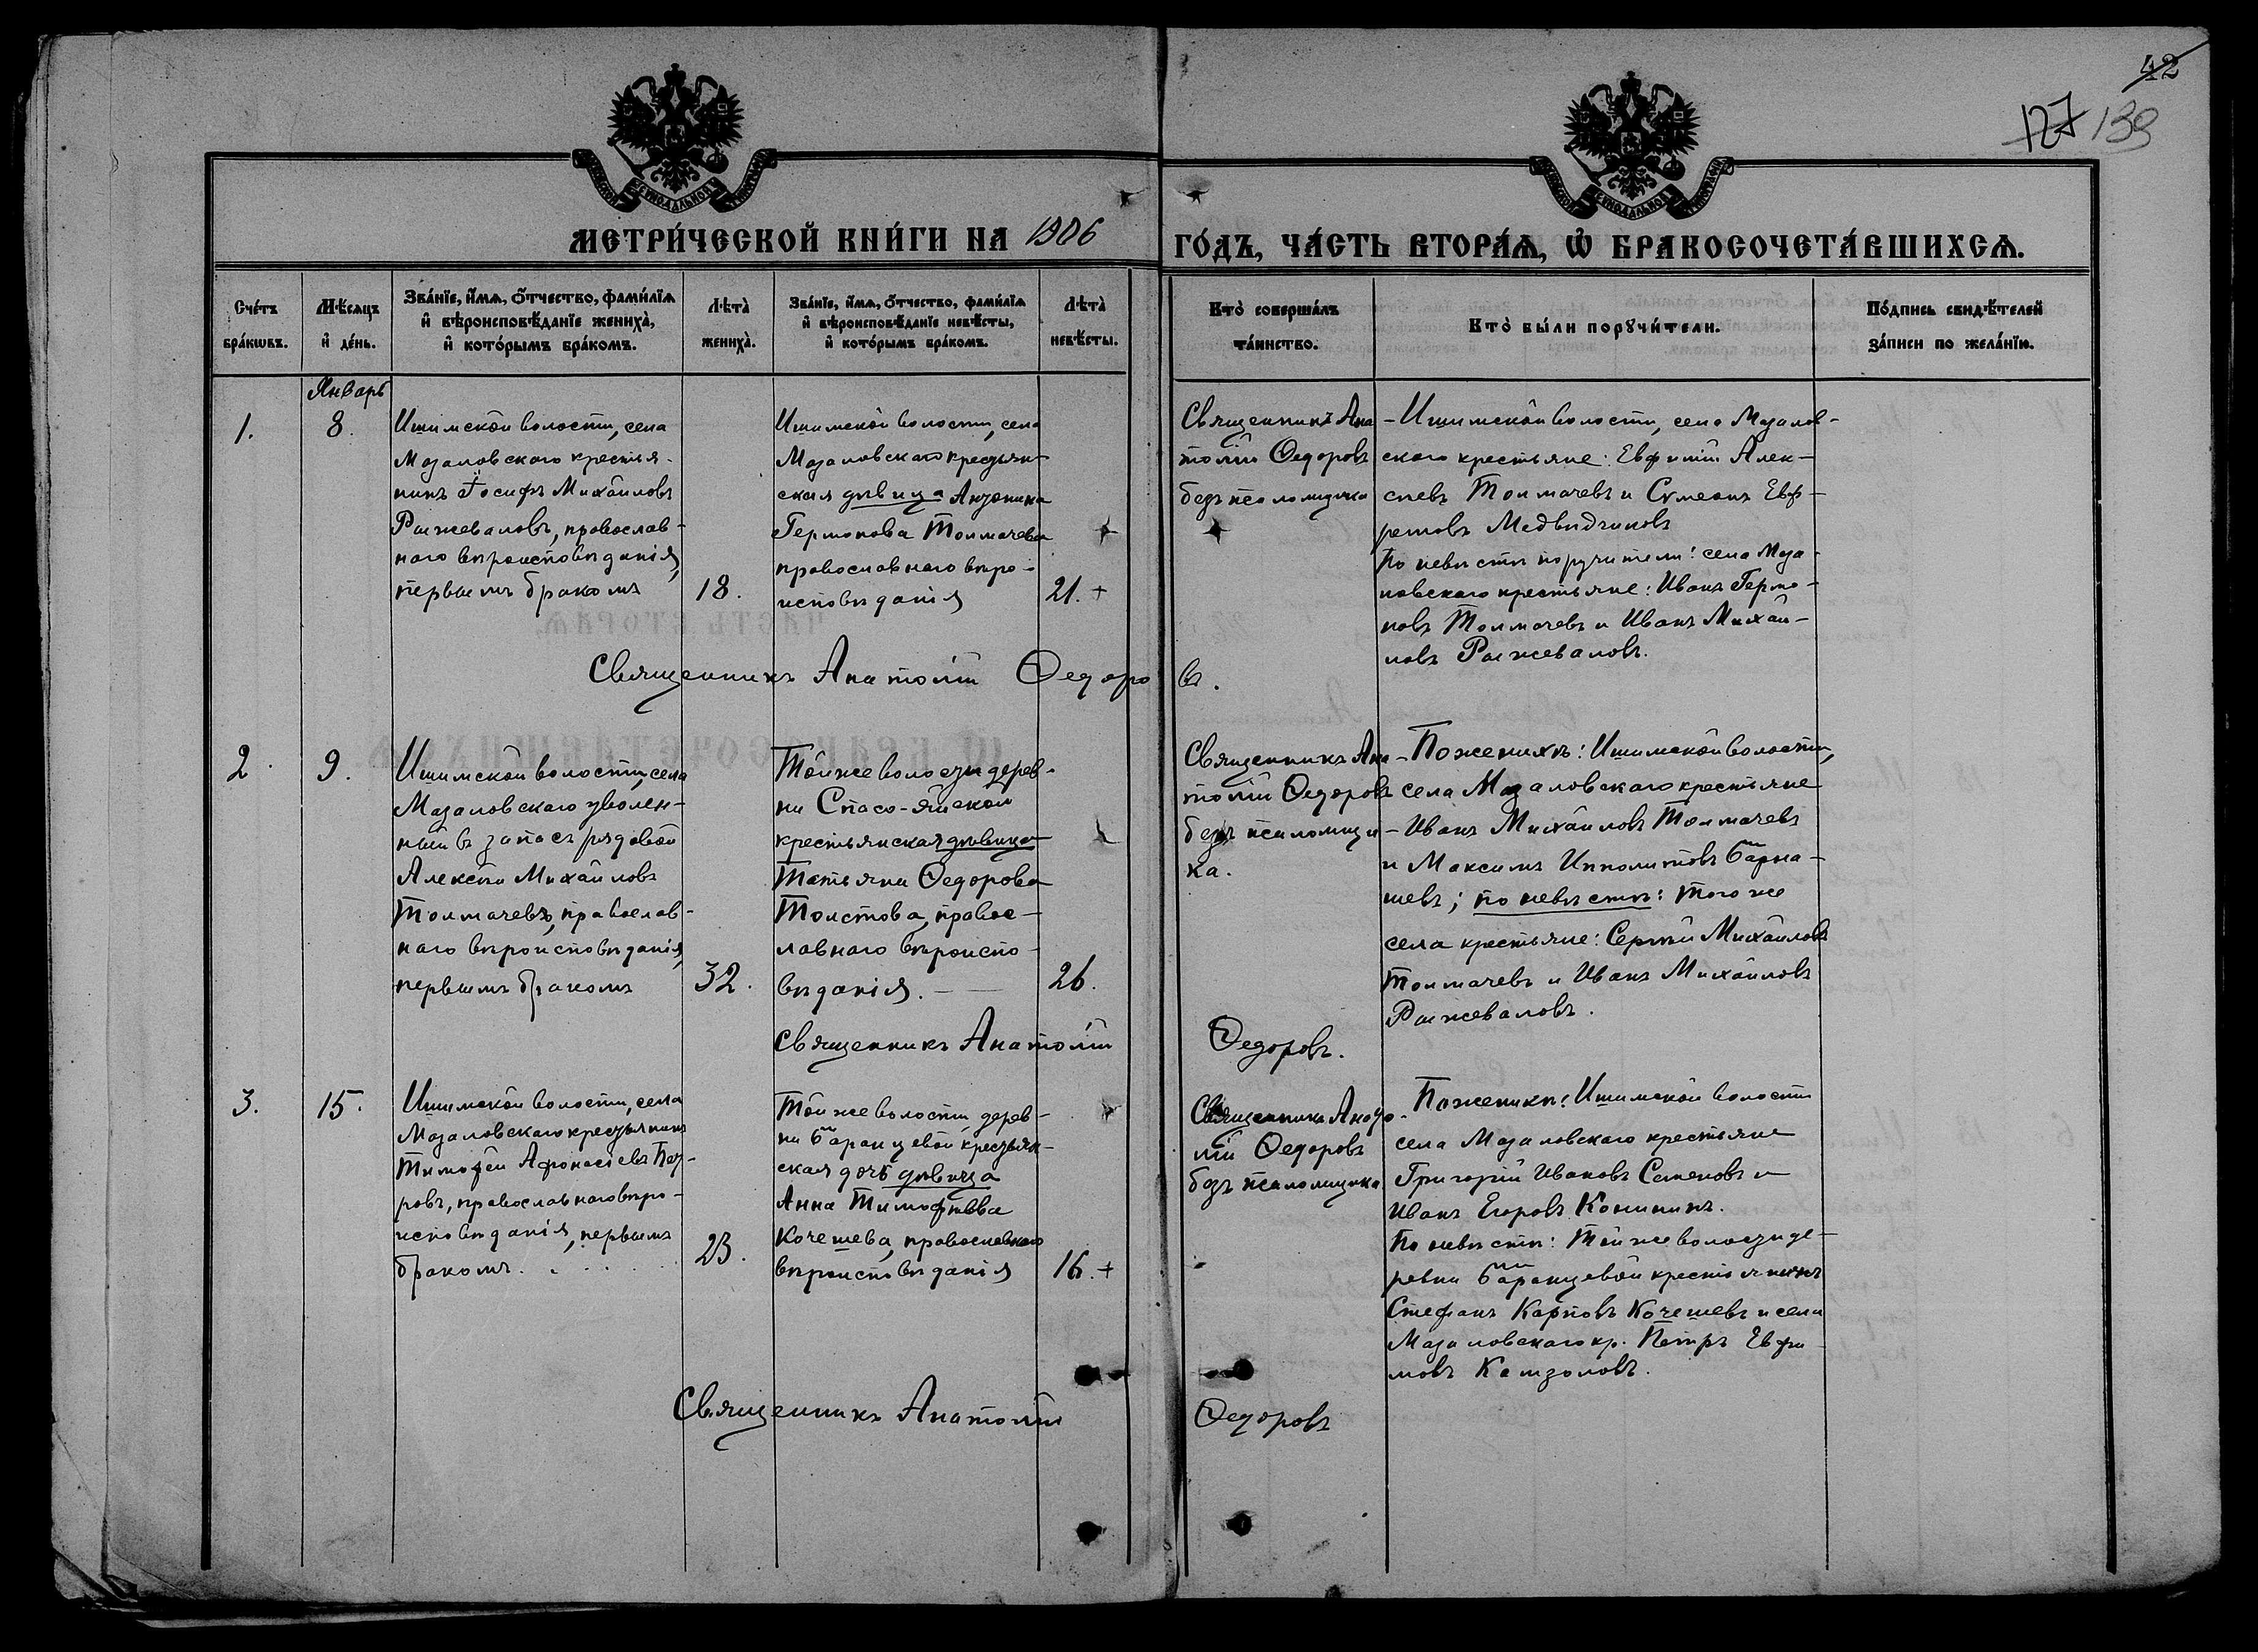 42
127 139
МЕТРИ́ЧЕСКОЙ КНИ́ГИ НА 1906 ГО́ДЪ, ЧА́СТЬ ВТОРА́Ѧ, Ѿ БРАКОСОЧЕТА́ВШИХСѦ.
Сче́тъ бра́кѡвъ.
Мѣ́сяцъ и де́нь.
Зва́нїе, и́мѧ, о́тчество, фами́лїѧ
и вѣроисповѣ́данїе жениха̀,
и кото́рымъ бра́комъ.
Лѣта̀ жениха̀.
Зва́нїе, и́мѧ, о́тчество, фами́лїѧ
и вѣроисповѣ́данїе невѣ́сты,
и кото́рымъ бра́комъ.
Лѣта̀ невѣ́сты.
Кто̀ соверша́лъ та́инство.
Кто̀ бы́ли порꙋчи́тели.
По́дпись свидѣ́телей за́писи по жела́нїю.
Январь
1.
8.
Ишимской волости, села
Мазаловскаго крестья-
нинъ Іосифъ Михаиловъ
Рыжеваловъ, православ-
наго вѣроисповѣданія,
первымъ бракомъ
18.
Ишимской волости, села
Мазаловскаго крестьян-
ская дѣвица Антонина
Германова Толмачева
православнаго вѣро-
исповѣданія
21. +
Священникъ Ана-
толій Ѳедоровъ
безъ псаломщика
Ишимской волости, села Мазалов-
скаго крестьяне: Евфимій Алек-
сѣевъ Толмачевъ и Сѵмеонъ Евф-
ремовъ Медвѣдчиковъ
По невѣстѣ поручители: села Маза-
ловскаго крестьяне: Иванъ Герма-
новъ Толмачевъ и Иванъ Михаи-
ловъ Рыжеваловъ.
Священникъ Анатолій Ѳедоровъ.
2.
9.
Ишимской волости, села
Мазаловскаго уволен-
ный въ запасъ рядовой
Алексѣй Михаиловъ
Толмачевъ, православ-
наго вѣроисповѣданія,
первымъ бракомъ
32.
Той же волости дерев-
ни Спасо-Яйской
крестьянская дѣвица
Татьяна Ѳедорова
Толстова, правос-
лавнаго вѣроиспо-
вѣданія.
26.
Священникъ Ана-
толій Ѳедоровъ
безъ псаломщи-
ка.
По женихѣ: Ишимской волости,
села Мазаловскаго крестьяне
Иванъ Михаиловъ Толмачевъ
и Максимъ Ипполитовъ Барна-
шевъ; по невѣстѣ: того же
села крестьяне: Сергѣй Михаиловъ
Толмачевъ и Иванъ Михаиловъ
Рыжеваловъ.
Священникъ Анатолій Ѳедоровъ.
3.
15.
Ишимской волости, села
Мазаловскаго крестьянинъ
Тимофей Афонасіевъ
православнаго вѣро-
исповѣданія, первымъ
бракомъ.
23.
Той же волости, дерев-
ни Баранцевой крестьян-
ская дочь дѣвица
Анна Тимофѣева
Кочешева, православнаго
вѣроисповѣданія
16. +
Священникъ Анато-
лій Ѳедоровъ
безъ псаломщика
По женихѣ: Ишимской волости
села Мазаловскаго крестьяне
Григорій Ивановъ Семеновъ и
Иванъ Егоровъ Конининъ.
По невѣстѣ: Той же волости де-
ревни Баранцевой крестьянинъ
Стефанъ Карповъ Кочешевъ и села
Мазаловскаго кр. Петръ Евфи-
мовъ Камзоловъ.
Священникъ Анатолій Ѳедоровъ